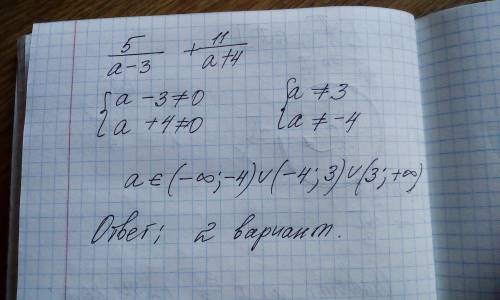 5/(a-3) + 11/(a+4)
{a - 3 ≠ 0 {a ≠ 3
{a + 4 ≠ 0 {a ≠ -4
a ∈ (-∞; -4) ∪ (-4; 3) ∪ (3; +∞)
Ответ: 2 вариант.